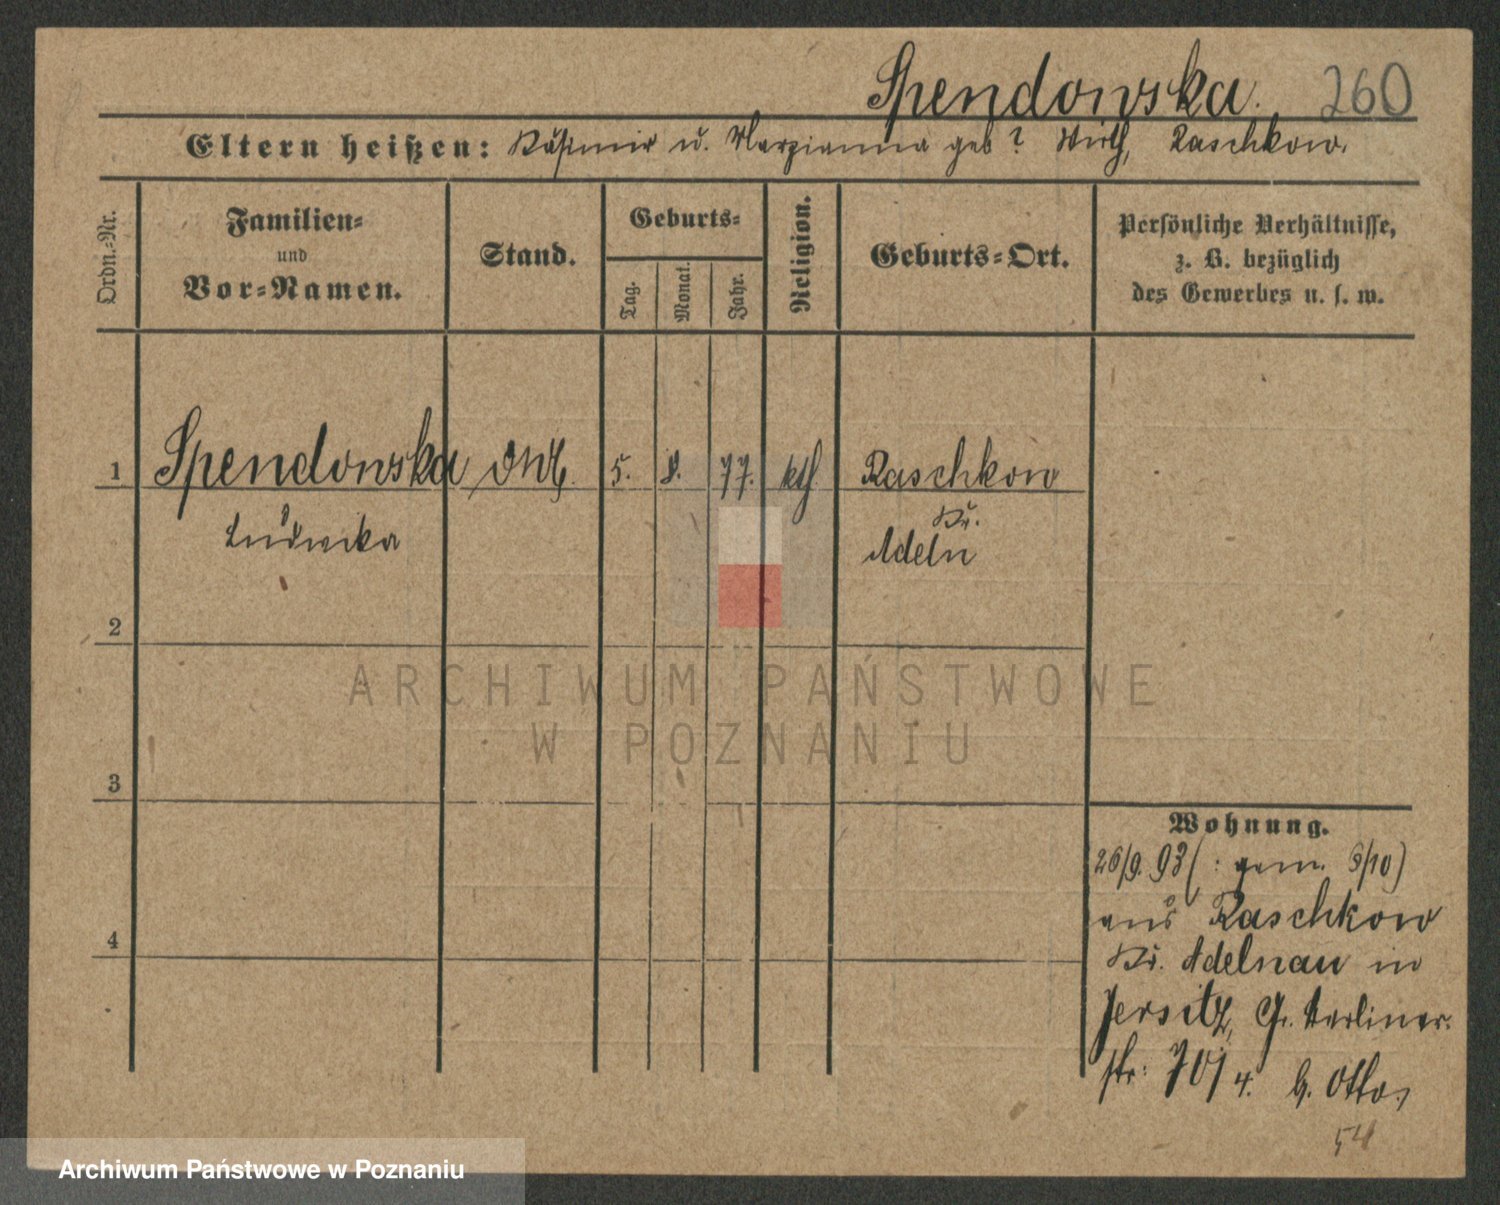 Spendowska. 260
Eltern heißen: Kasimir u. Marzianna geb? Wirth, Raschkow.
Ordn.-Nr.
Familien-
und
Vor-Namen.
Stand.
Geburts-
Tag.
Monat.
Jahr.
Religion.
Geburts-Ort.
Persönliche Verhältnisse,
z. B. bezüglich
des Gewerbes u. s. w.
1 Spendowska 5. 8. 77. kth Raschkow
Ludwika Kr.
Adeln
2
ARCHIWUM PAŃSTWOWE
W POZNANIU
3
Wohnung.
26/9. 93 (: gem. 3/10)
aus Raschkow
4
Kr. Adelnau in
Jersitz, Gr. Berliner-
str: 70/4. b. Otto.
54
Archiwum Państwowe w Poznaniu